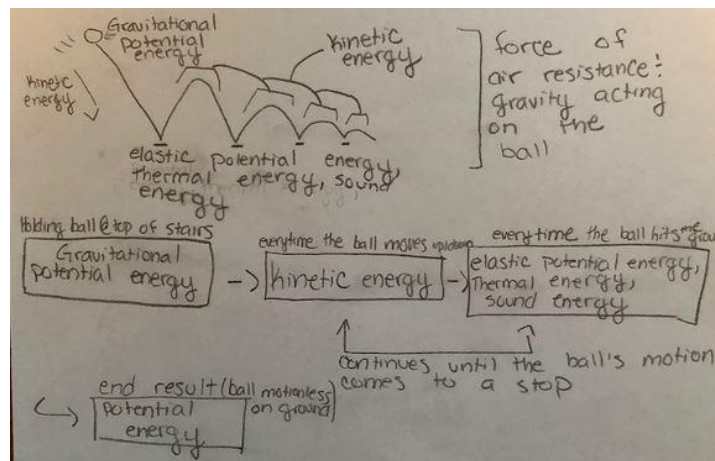 Gravitational
potential
energy
kinetic
energy
kinetic
energy
force of
air resistance &
gravity acting
on the
ball
elastic potential energy,
thermal energy, sound
energy
Holding ball @ top of stairs
Gravitational
potential energy
everytime the ball moves up/down
kinetic energy
everytime the ball hits the ground
elastic potential energy,
Thermal energy,
sound energy
continues until the ball's motion
comes to a stop
end result (ball motionless
on ground)
potential
energy